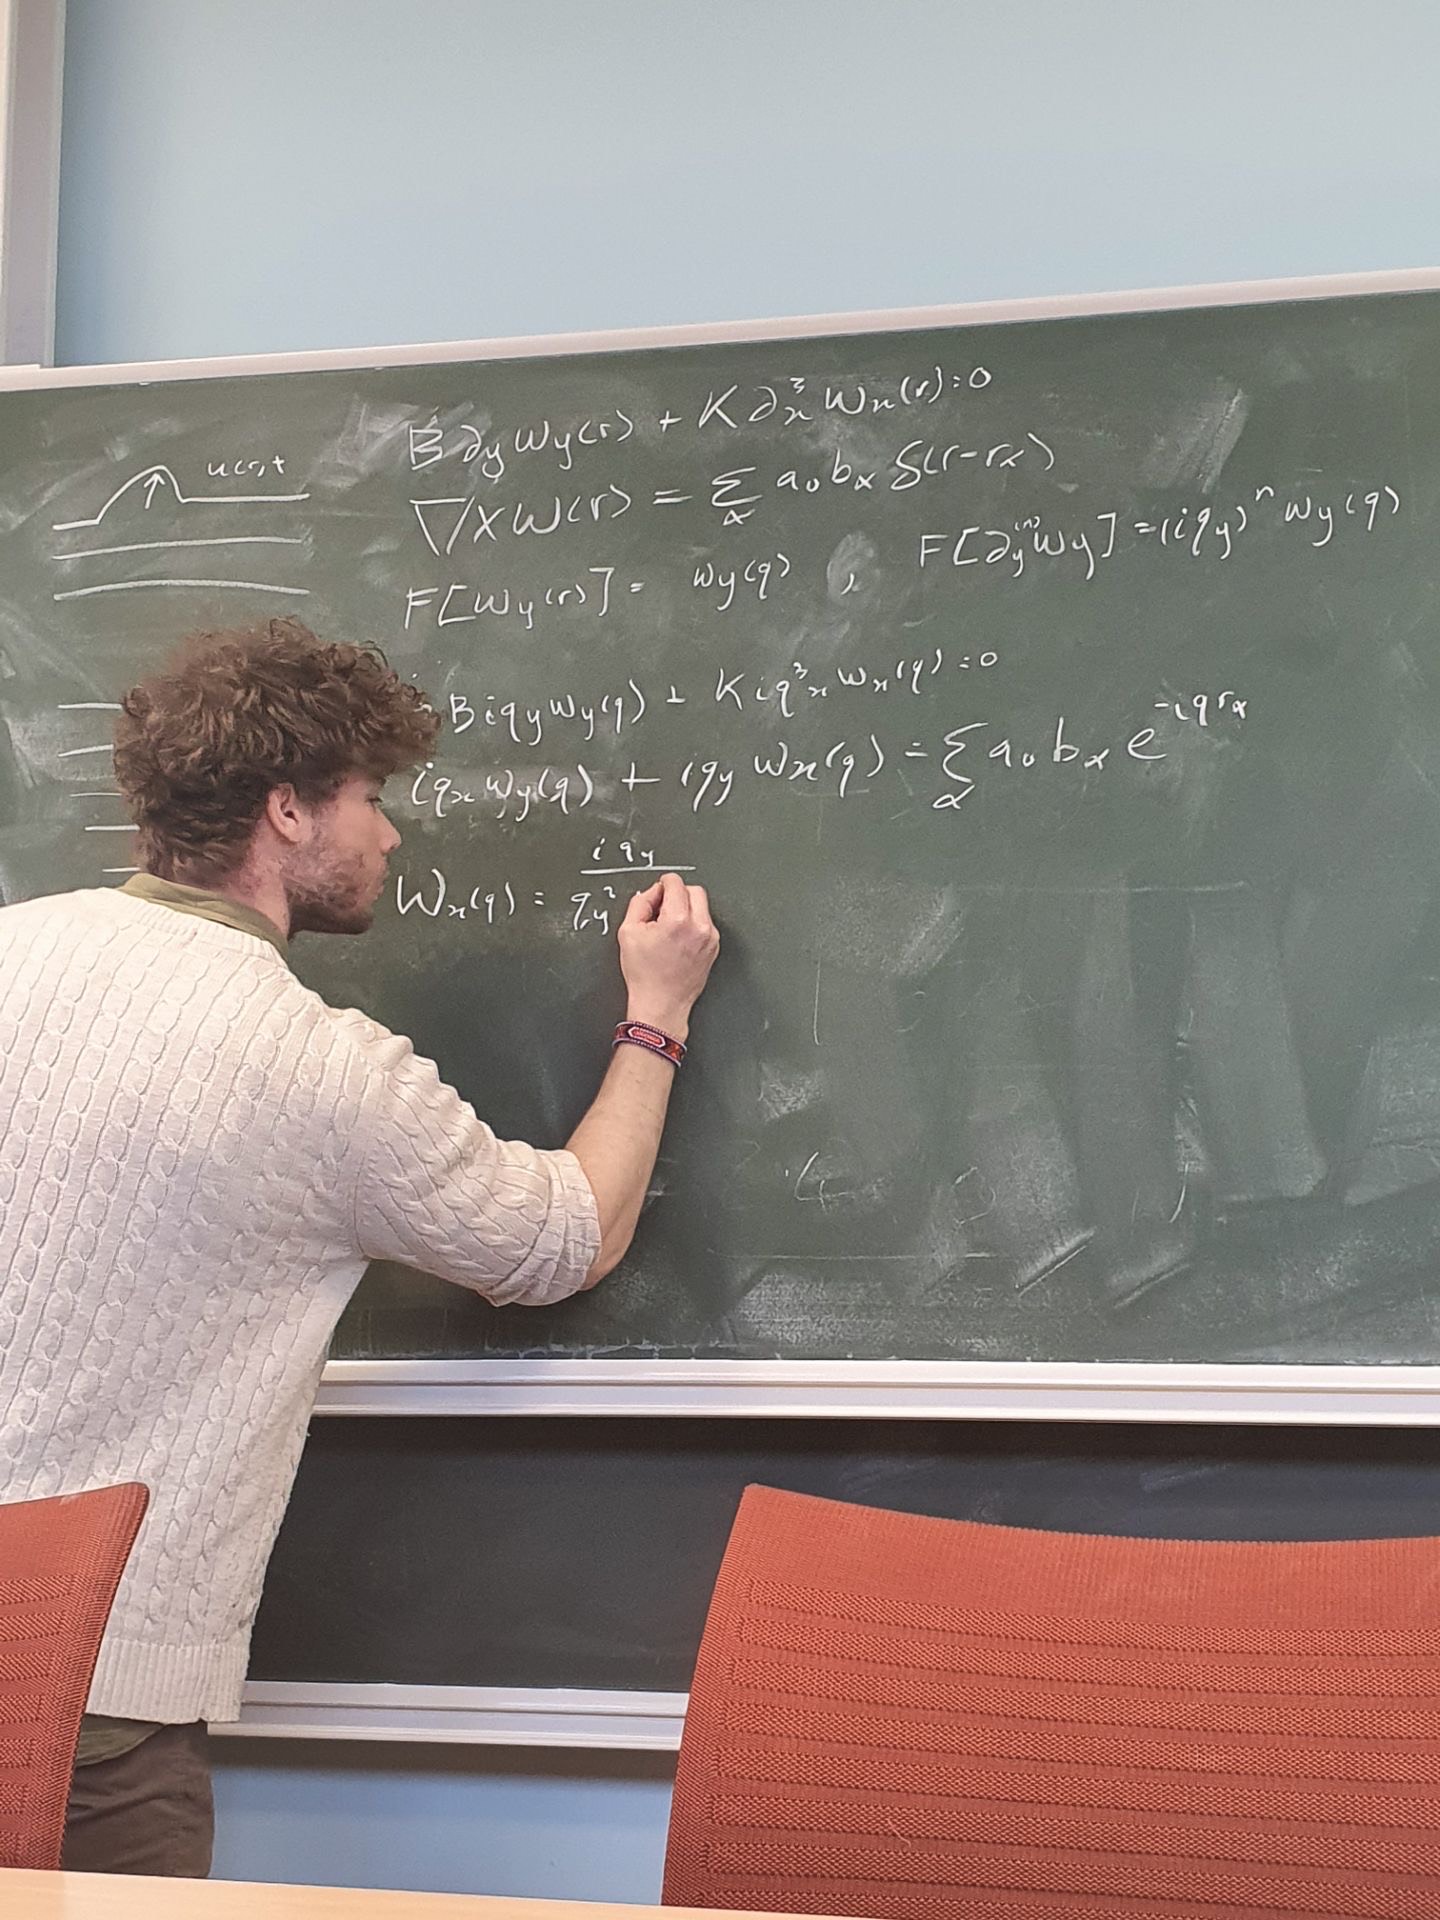 u(r,t
B ∂y Wy(r) + K ∂x³ Wx(r) = 0
∇ x W(r) = Σα a₀ bα δ(r-rα)
F[Wy(r)] = Wy(q) , F[∂y⁽ⁿ⁾ Wy] = (i qy)ⁿ Wy(q)
B i qy Wy(q) + K i q³x Wx(q) = 0
i qx Wy(q) + i qy Wx(q) = Σα a₀ bα e^(-i q rα)
Wx(q) = i qy / qy²